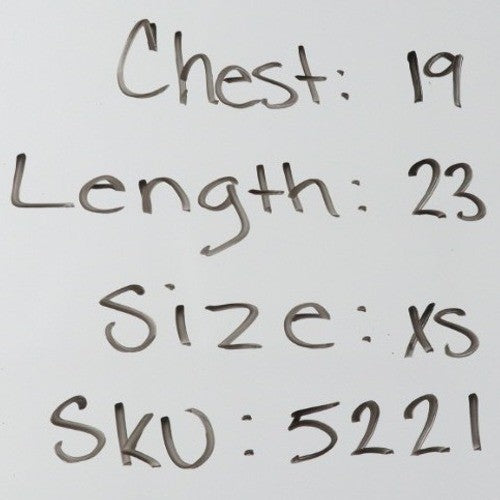 Chest: 19
Length: 23
Size: XS
SKU: 5221